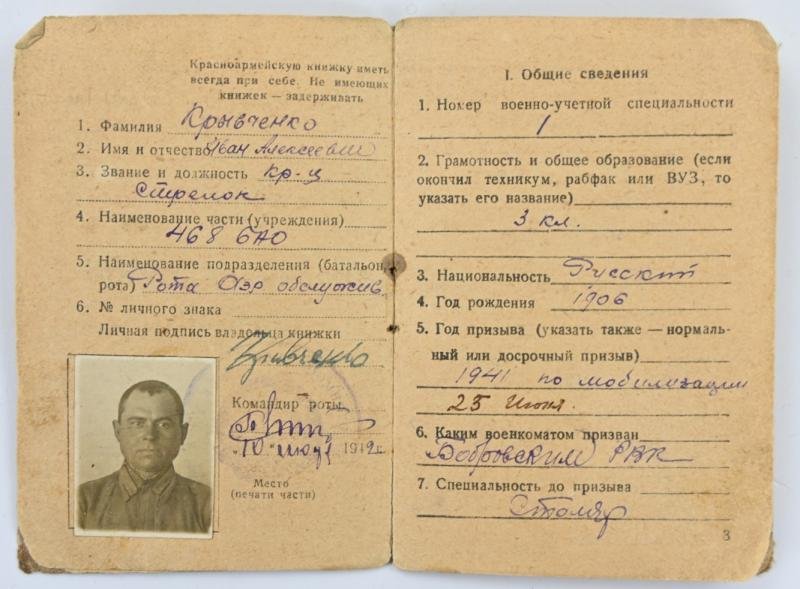 Красноармейскую книжку иметь
всегда при себе. Не имеющих
книжек — задерживать
1. Фамилия Крывченко
2. Имя и отчество Иван Алексеевич
3. Звание и должность кр-ц
Стрелок
4. Наименование части (учреждения)
468 БАО
5. Наименование подразделения (батальон,
рота) Рота Аэр обслужив.
6. № личного знака
Личная подпись владельца книжки
Кривченко
Командир роты
"10" 1942 г.
Место
(печати части)
I. Общие сведения
1. Номер военно-учетной специальности
1
2. Грамотность и общее образование (если
окончил техникум, рабфак или ВУЗ, то
указать его название)
3 кл.
3. Национальность Русский
4. Год рождения 1906
5. Год призыва (указать также — нормаль-
ный или досрочный призыв)
1941 по мобилизации
25 Июня.
6. Каким военкоматом призван
Бобровским РВК
7. Специальность до призыва
Столяр
3